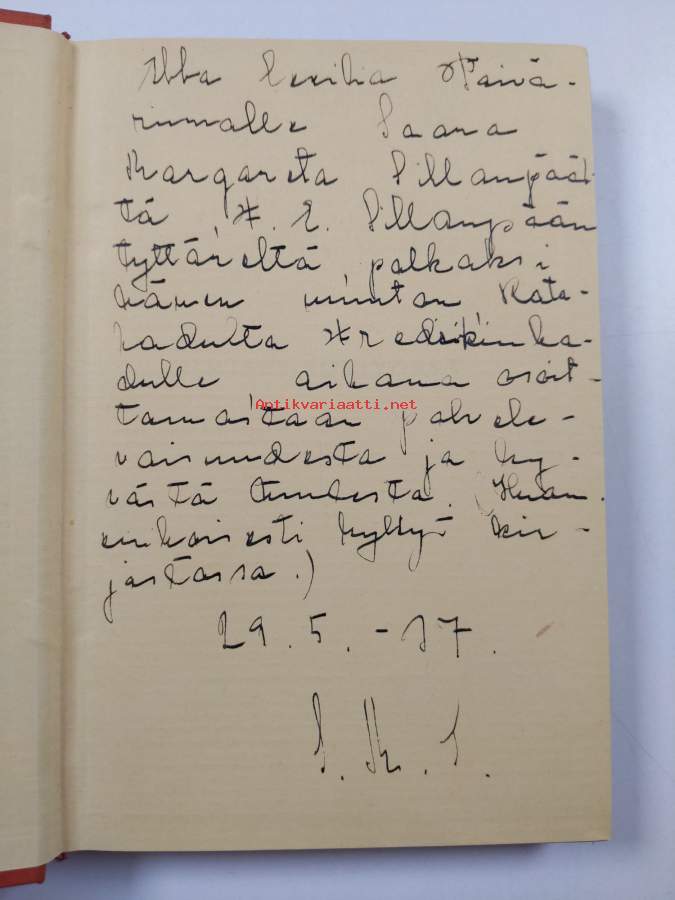 Ebba Cecilia Päivä-
rinnalle Saara
Margareta Sillanpääl-
tä, F. E. Sillanpään
tyttäreltä, palkaksi
hänen muuton Kata-
kadulta Fredrikinka-
dulle aikana osoit-
tamastaan palvele-
vaisuudesta ja hy-
västä tuulesta. (Huom.
erikoisesti hyllyt kir-
jastossa.)
29. 5. -37.
S. M. S.
Antikvariaatti.net